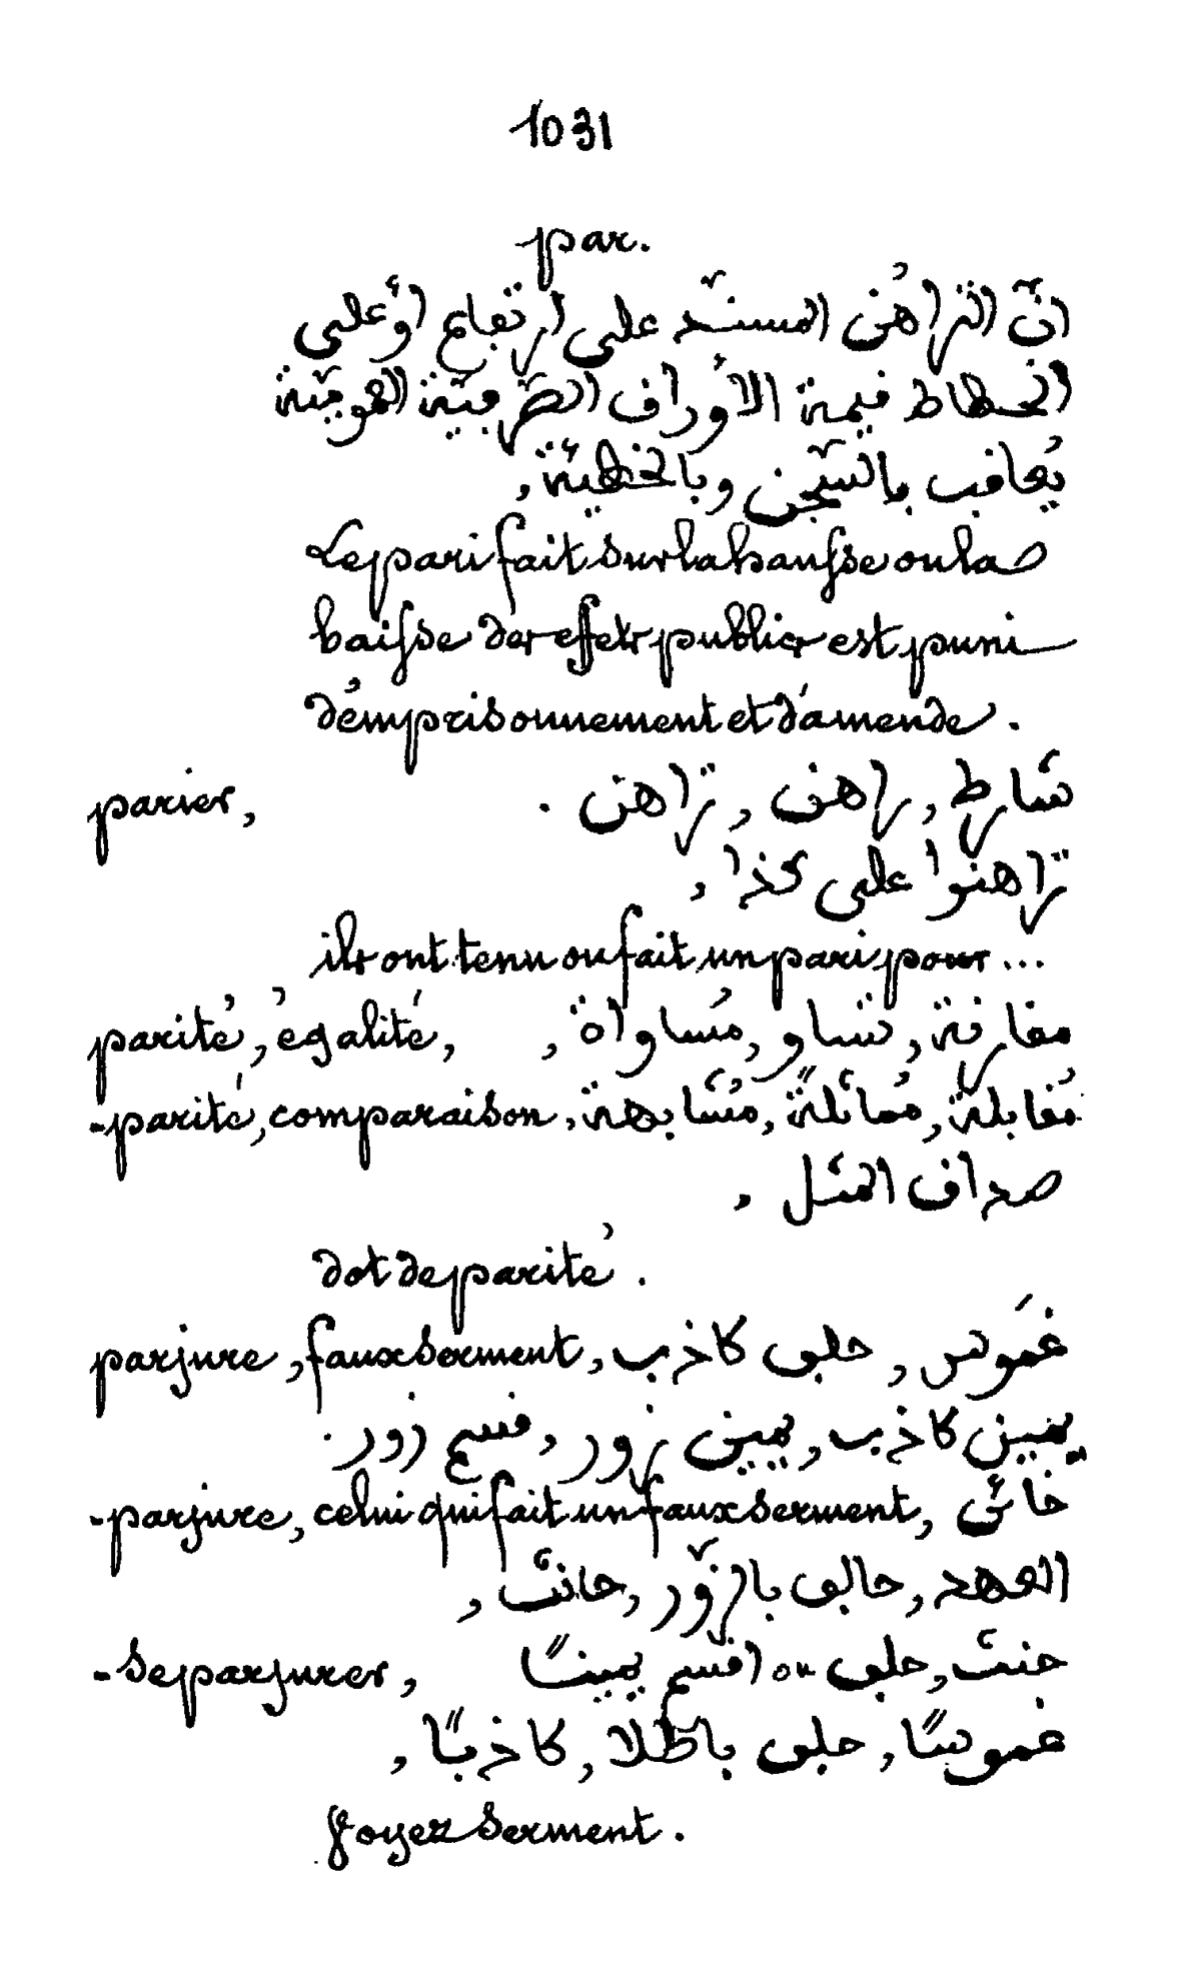 1031
par.
انّ التراهُن المسنّد على ارتفاع أو على
انحطاط قيمة الأوراق الصّرفيّة العوميّة
يُعاقب بالسّجن وبالخطيئة,
Le pari fait sur la hausse ou la
baisse des effets publics est puni
d'emprisonnement et d'amende.
parier, شارط, راهن, تراهن.
تراهنوا على كذا,
ils ont tenu ou fait un pari pour...
parité, égalité, مقارنة, تساو, مُساواة,
-parité, comparaison, مُقابلة, مُماثلةً, مُشابهة,
صداق المثل,
dot de parité.
parjure, faux serment, غَموس, حلف كاذب,
يمين كاذب, يمين زور, قسم زور.
-parjure, celui qui fait un faux serment, خائن
العهد, حالف بالزّور, حانث,
-se parjurer, حنث, حلف ou اقسم يمينًا
غموسًا, حلف باطلا, كاذبًا,
Voyez serment.